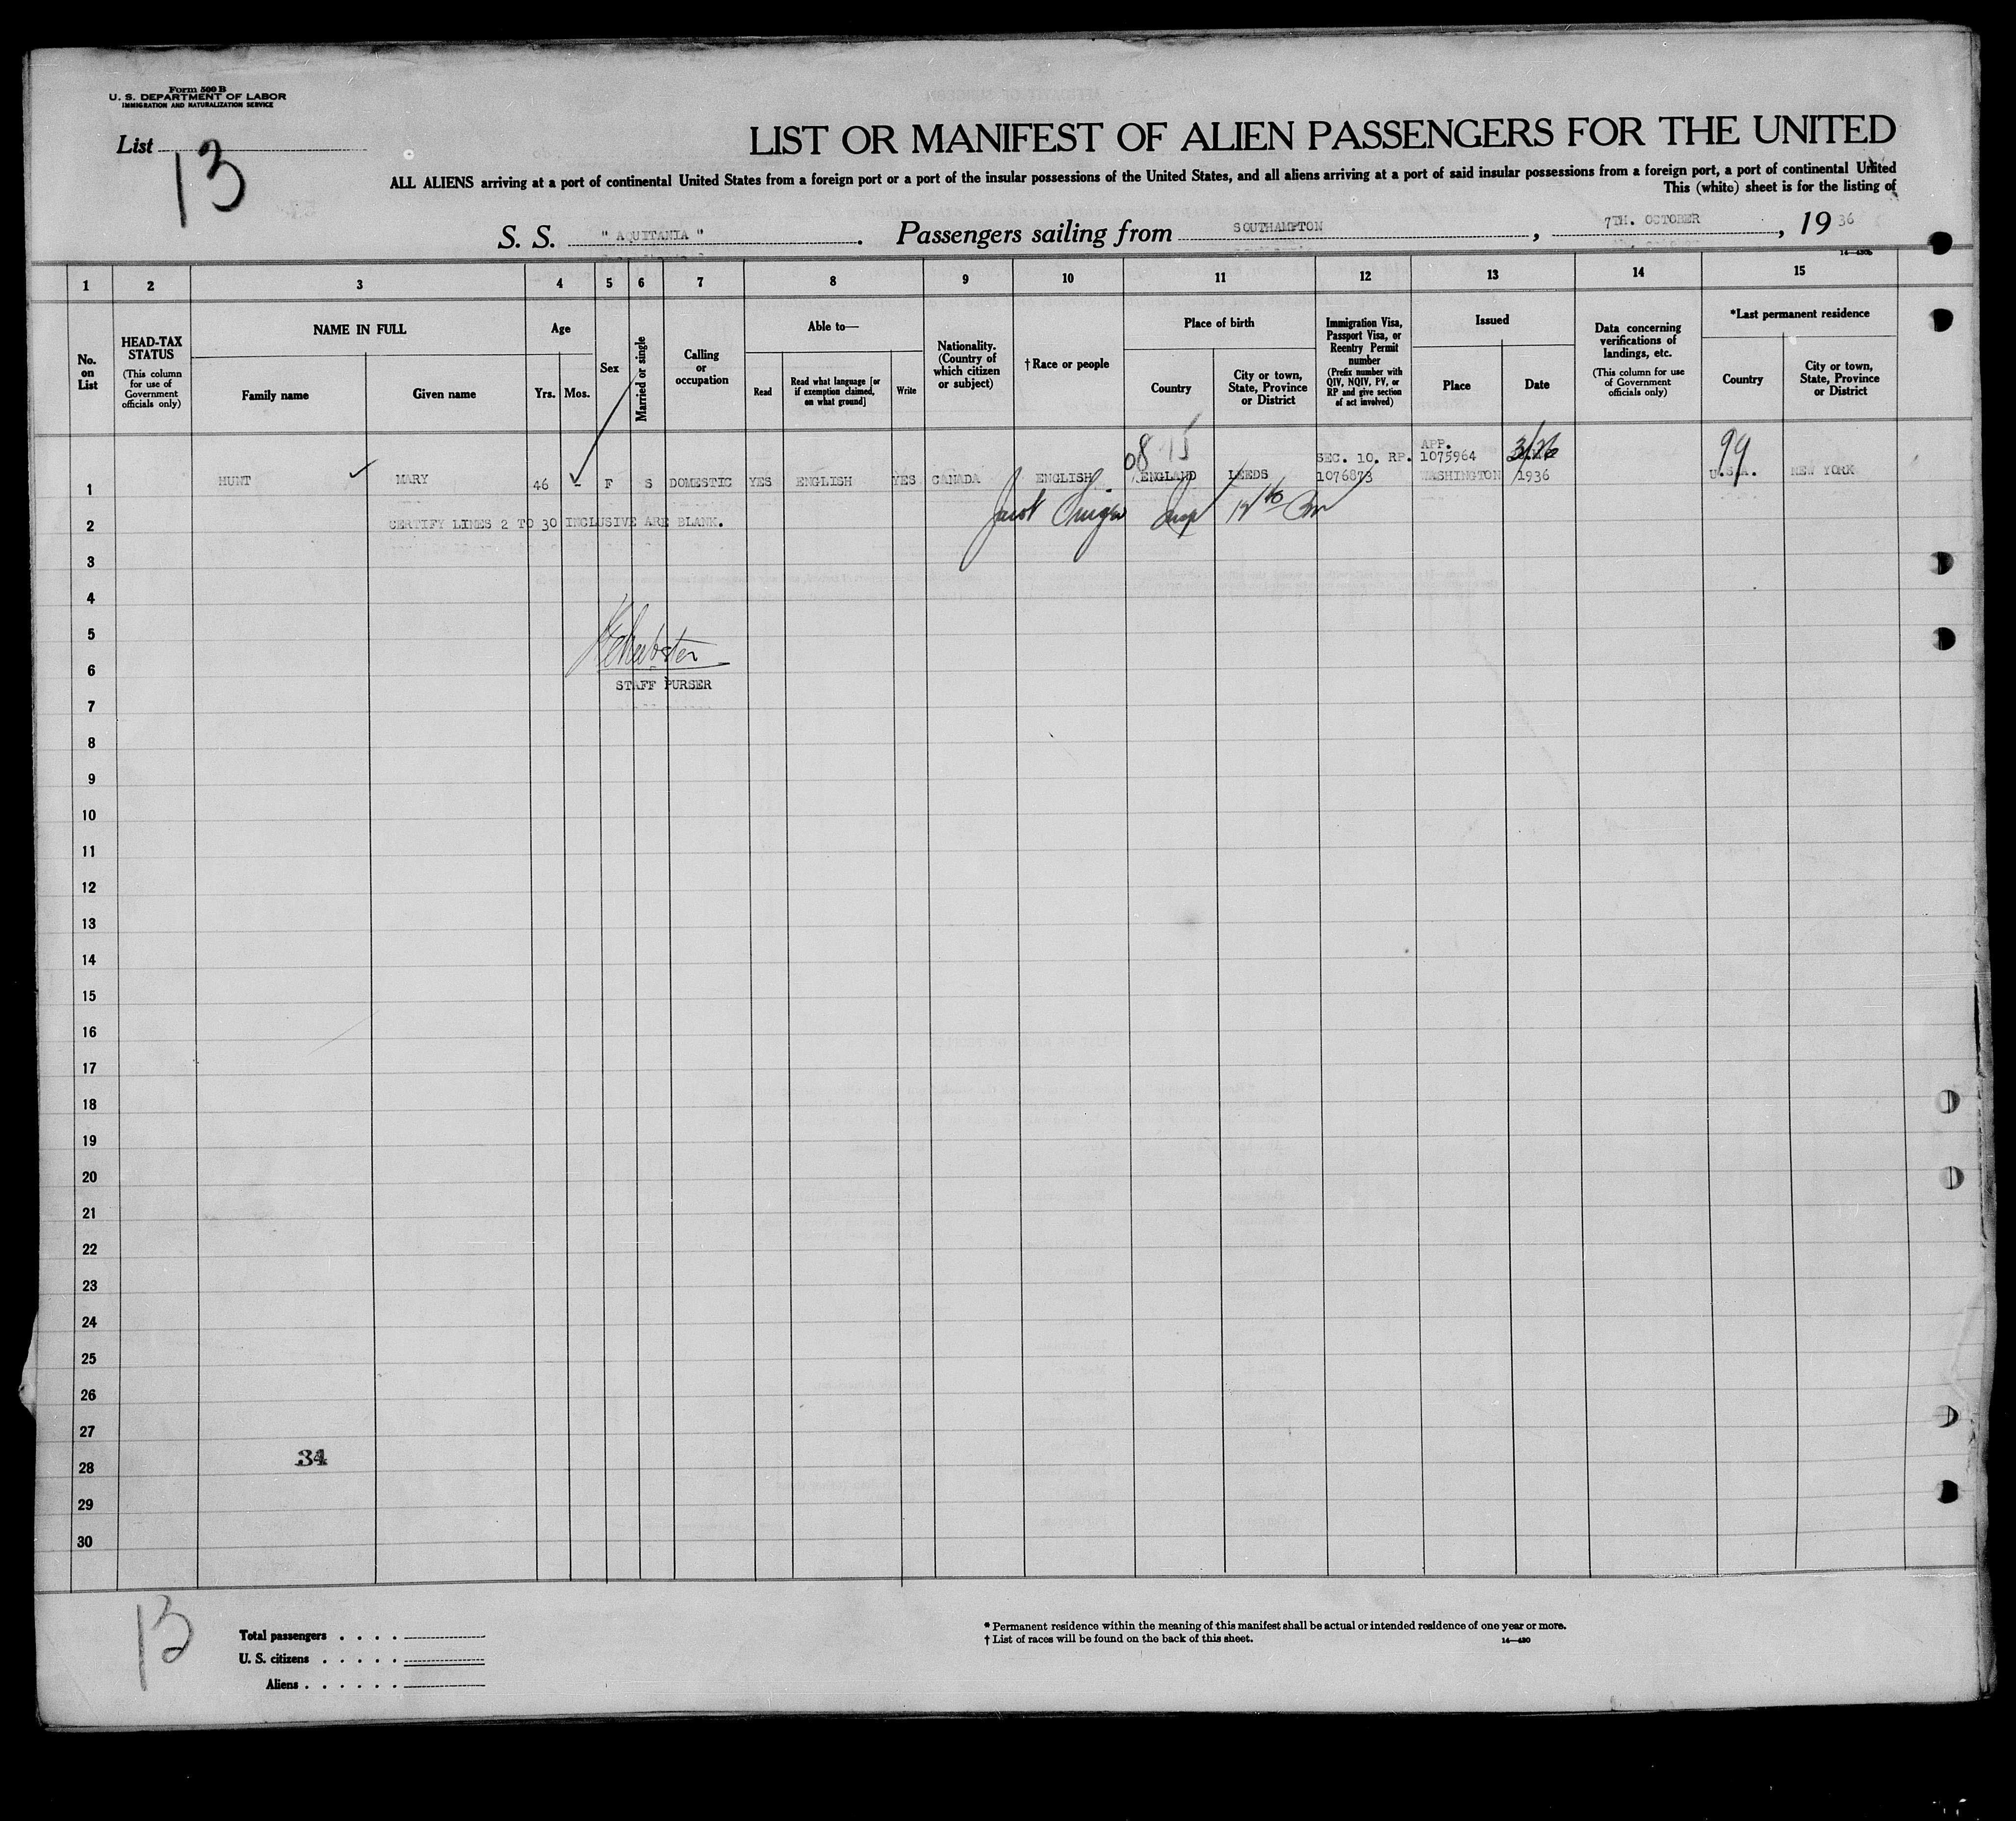 Form 500 B
U. S. DEPARTMENT OF LABOR
IMMIGRATION AND NATURALIZATION SERVICE
List 13
LIST OR MANIFEST OF ALIEN PASSENGERS FOR THE UNITED
ALL ALIENS arriving at a port of continental United States from a foreign port or a port of the insular possessions of the United States, and all aliens arriving at a port of said insular possessions from a foreign port, a port of continental United
This (white) sheet is for the listing of
S. S. " AQUITANIA " . Passengers sailing from SOUTHAMPTON , 7TH. OCTOBER , 19 36
14—430b
1 2 3 4 5 6 7 8 9 10 11 12 13 14 15
No. on List
HEAD-TAX STATUS
(This column for use of Government officials only)
NAME IN FULL
Family name
Given name
Age
Yrs. Mos.
Sex
Married or single
Calling or occupation
Able to—
Read
Read what language [or if exemption claimed, on what ground]
Write
Nationality. (Country of which citizen or subject)
† Race or people
Place of birth
Country
City or town, State, Province or District
Immigration Visa, Passport Visa, or Reentry Permit number
(Prefix number with QIV, NQIV, PV, or RP and give section of act involved)
Issued
Place
Date
Data concerning verifications of landings, etc.
(This column for use of Government officials only)
*Last permanent residence
Country
City or town, State, Province or District
08 15
APP.
SEC. 10. RP. 1075964
99
1 HUNT MARY 46 - F S DOMESTIC YES ENGLISH YES CANADA ENGLISH ENGLAND LEEDS 1076873 WASHINGTON 1936 U.S.A. NEW YORK
2 CERTIFY LINES 2 TO 30 INCLUSIVE ARE BLANK.
3
4
5
6
STAFF PURSER
7
8
9
10
11
12
13
14
15
16
17
18
19
20
21
22
23
24
25
26
27
34
28
29
30
13
Total passengers . . . .
U. S. citizens . . . . .
Aliens . . . . . .
* Permanent residence within the meaning of this manifest shall be actual or intended residence of one year or more.
† List of races will be found on the back of this sheet.
14—430